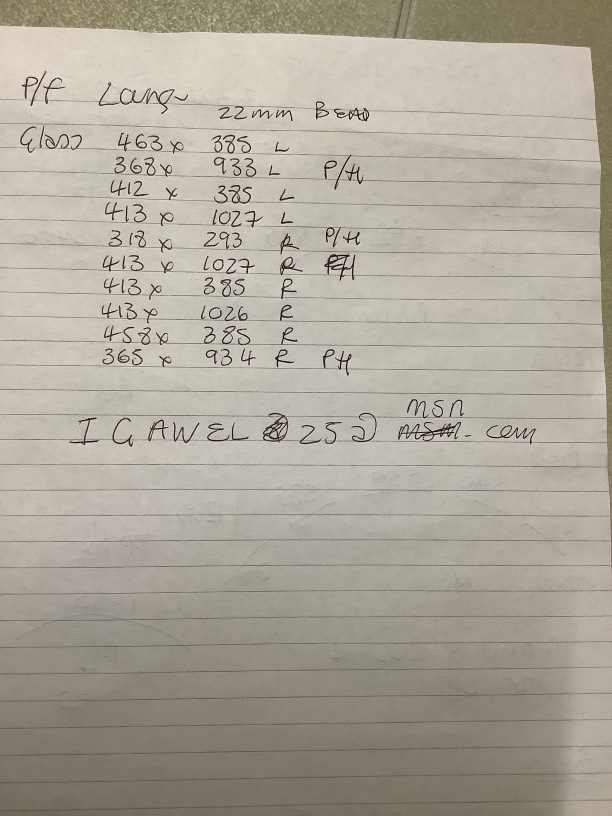 P/f Lang
22mm BEAD
Glass 463 x 385 L
368 x 933 L P/H
412 x 385 L
413 x 1027 L
318 x 293 R P/H
413 x 1027 R
413 x 385 R
413 x 1026 R
458 x 385 R
365 x 934 R PH
msn
IGAWEL 25@ .com